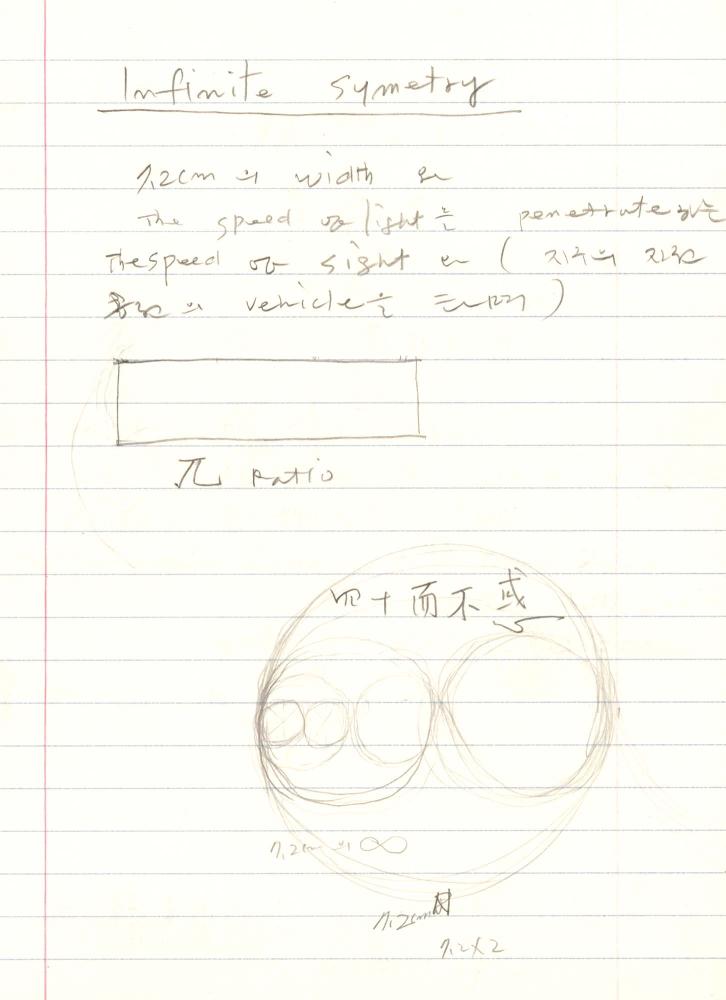 Infinite symetry
7.2cm 의 width 은
The speed of light 를 penetrate 하는
The speed of sight 은 ( 지구의 자전
의 vehicle을 )
π Ratio
四十而不惑
7.2cm 의 ∞
7.2cm
7.2×2